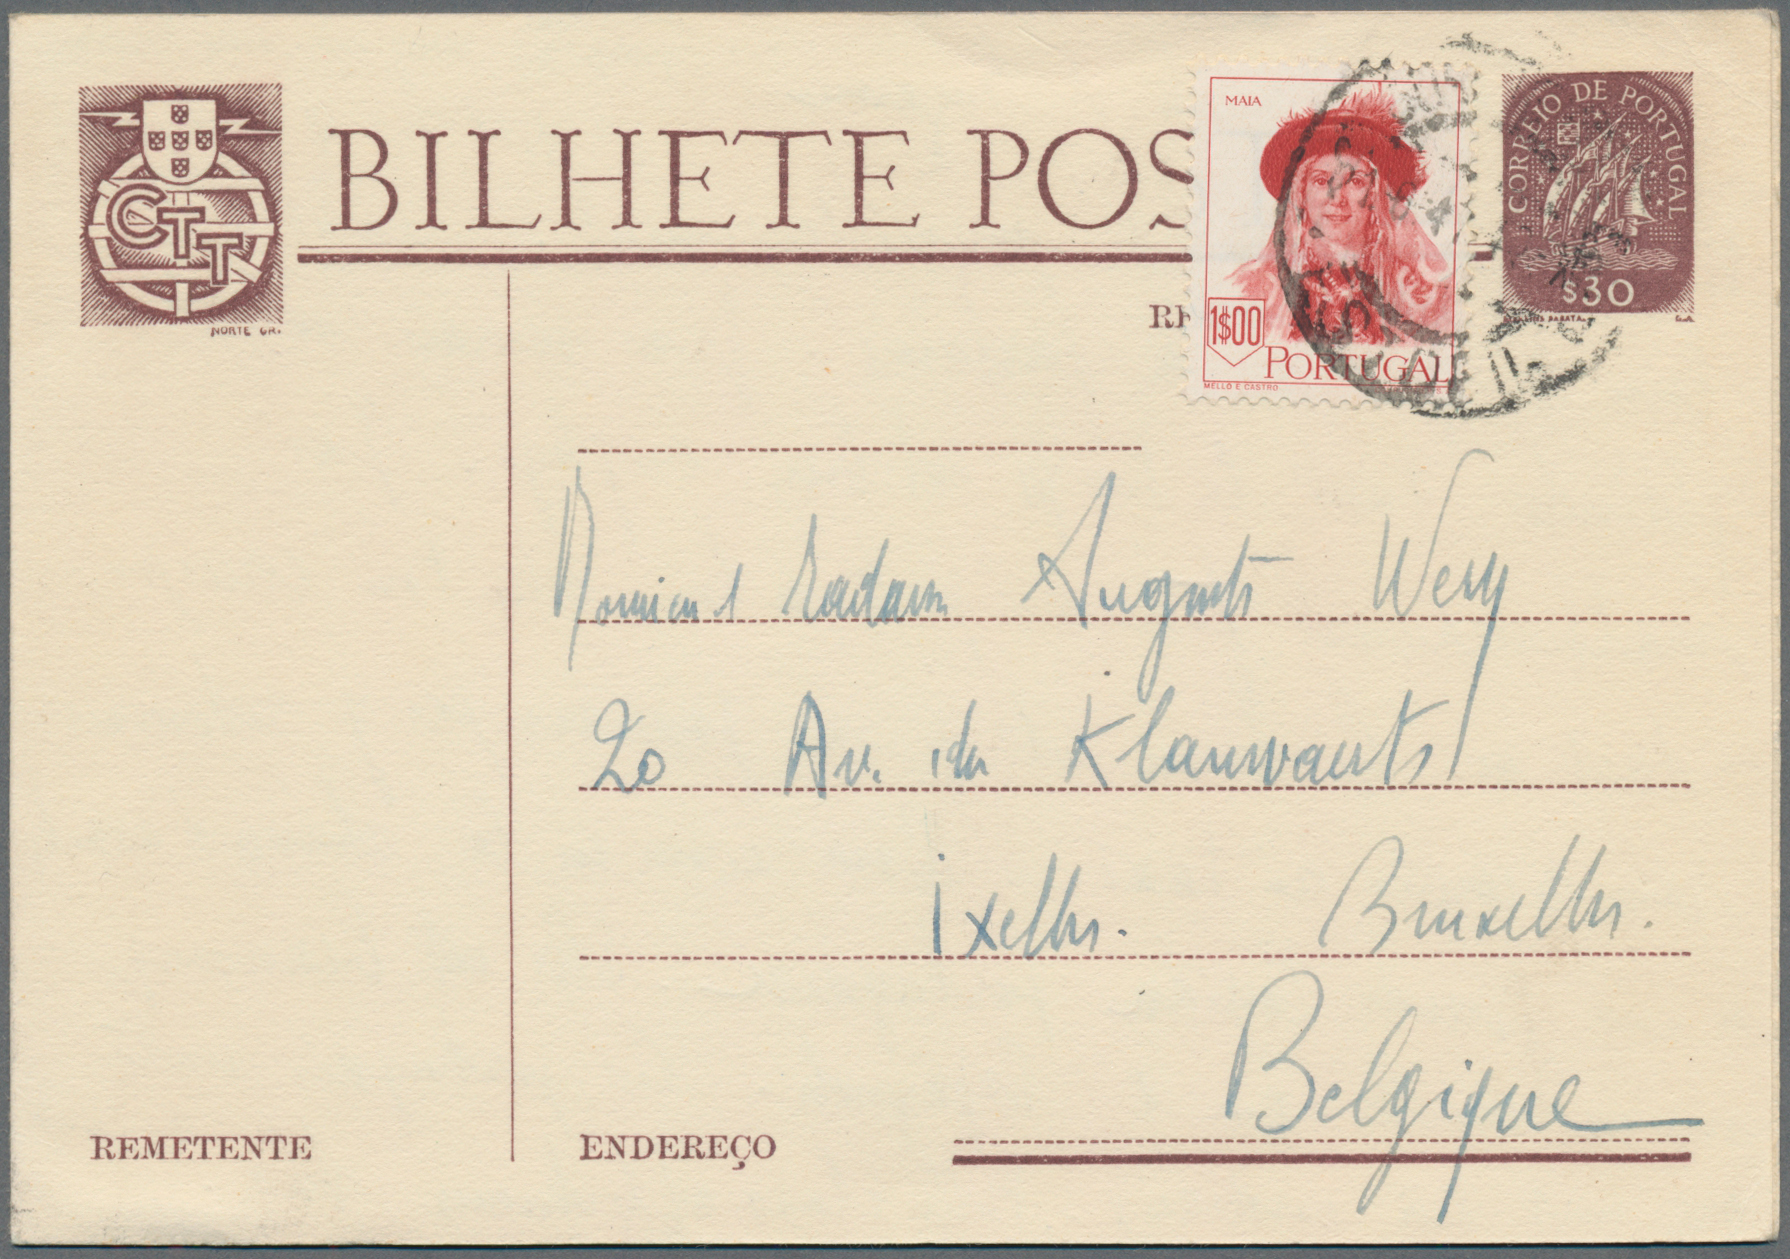 BILHETE POS
CTT
NORTE GR.
RE
MAIA
1$00
PORTUGAL
MELLO E CASTRO
CORREIO DE PORTUGAL
$30
Monsieur Madame Auguste Wery
20 Av. des Klauwaerts
Ixelles. Bruxelles.
Belgique
REMETENTE
ENDEREÇO